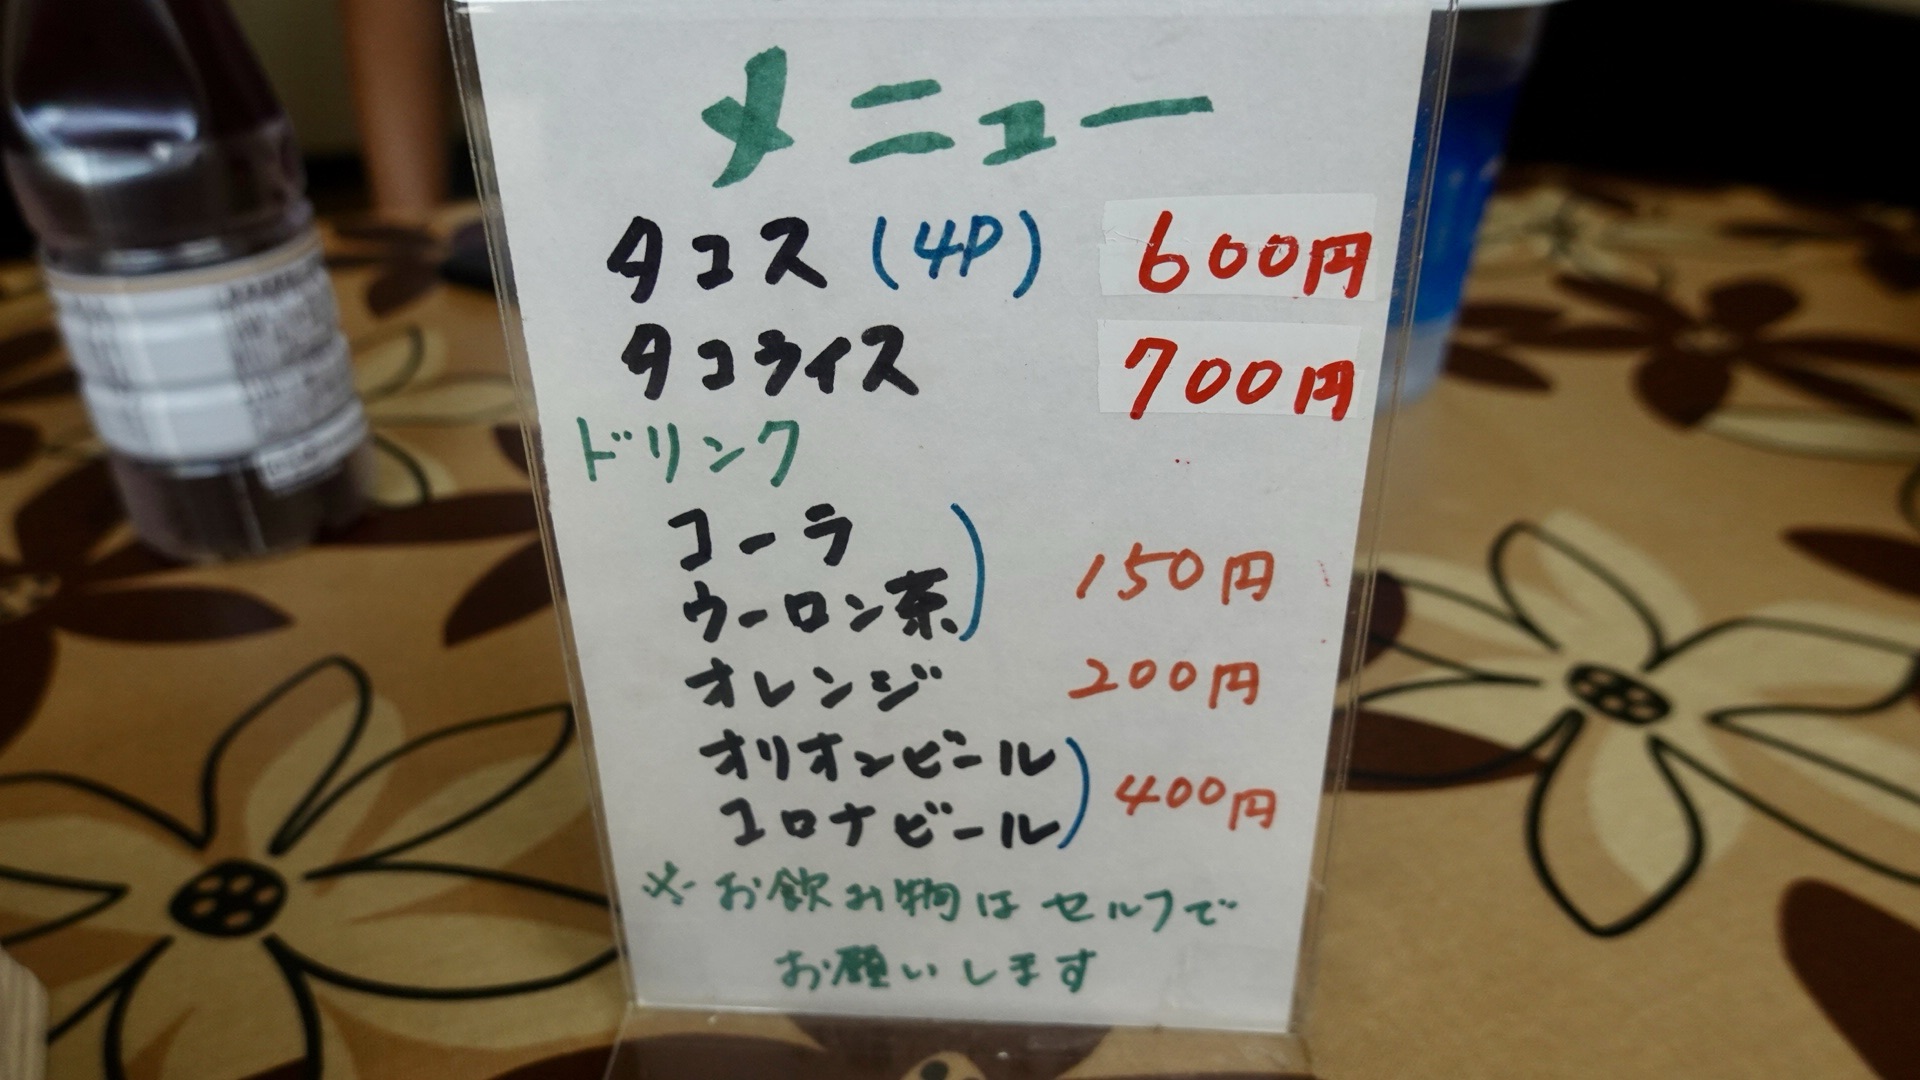 メニュー
タコス (4P) 600円
タコライス 700円
ドリンク
コーラ
ウーロン茶 150円
オレンジ 200円
オリオンビール
コロナビール 400円
※お飲み物はセルフで
お願いします